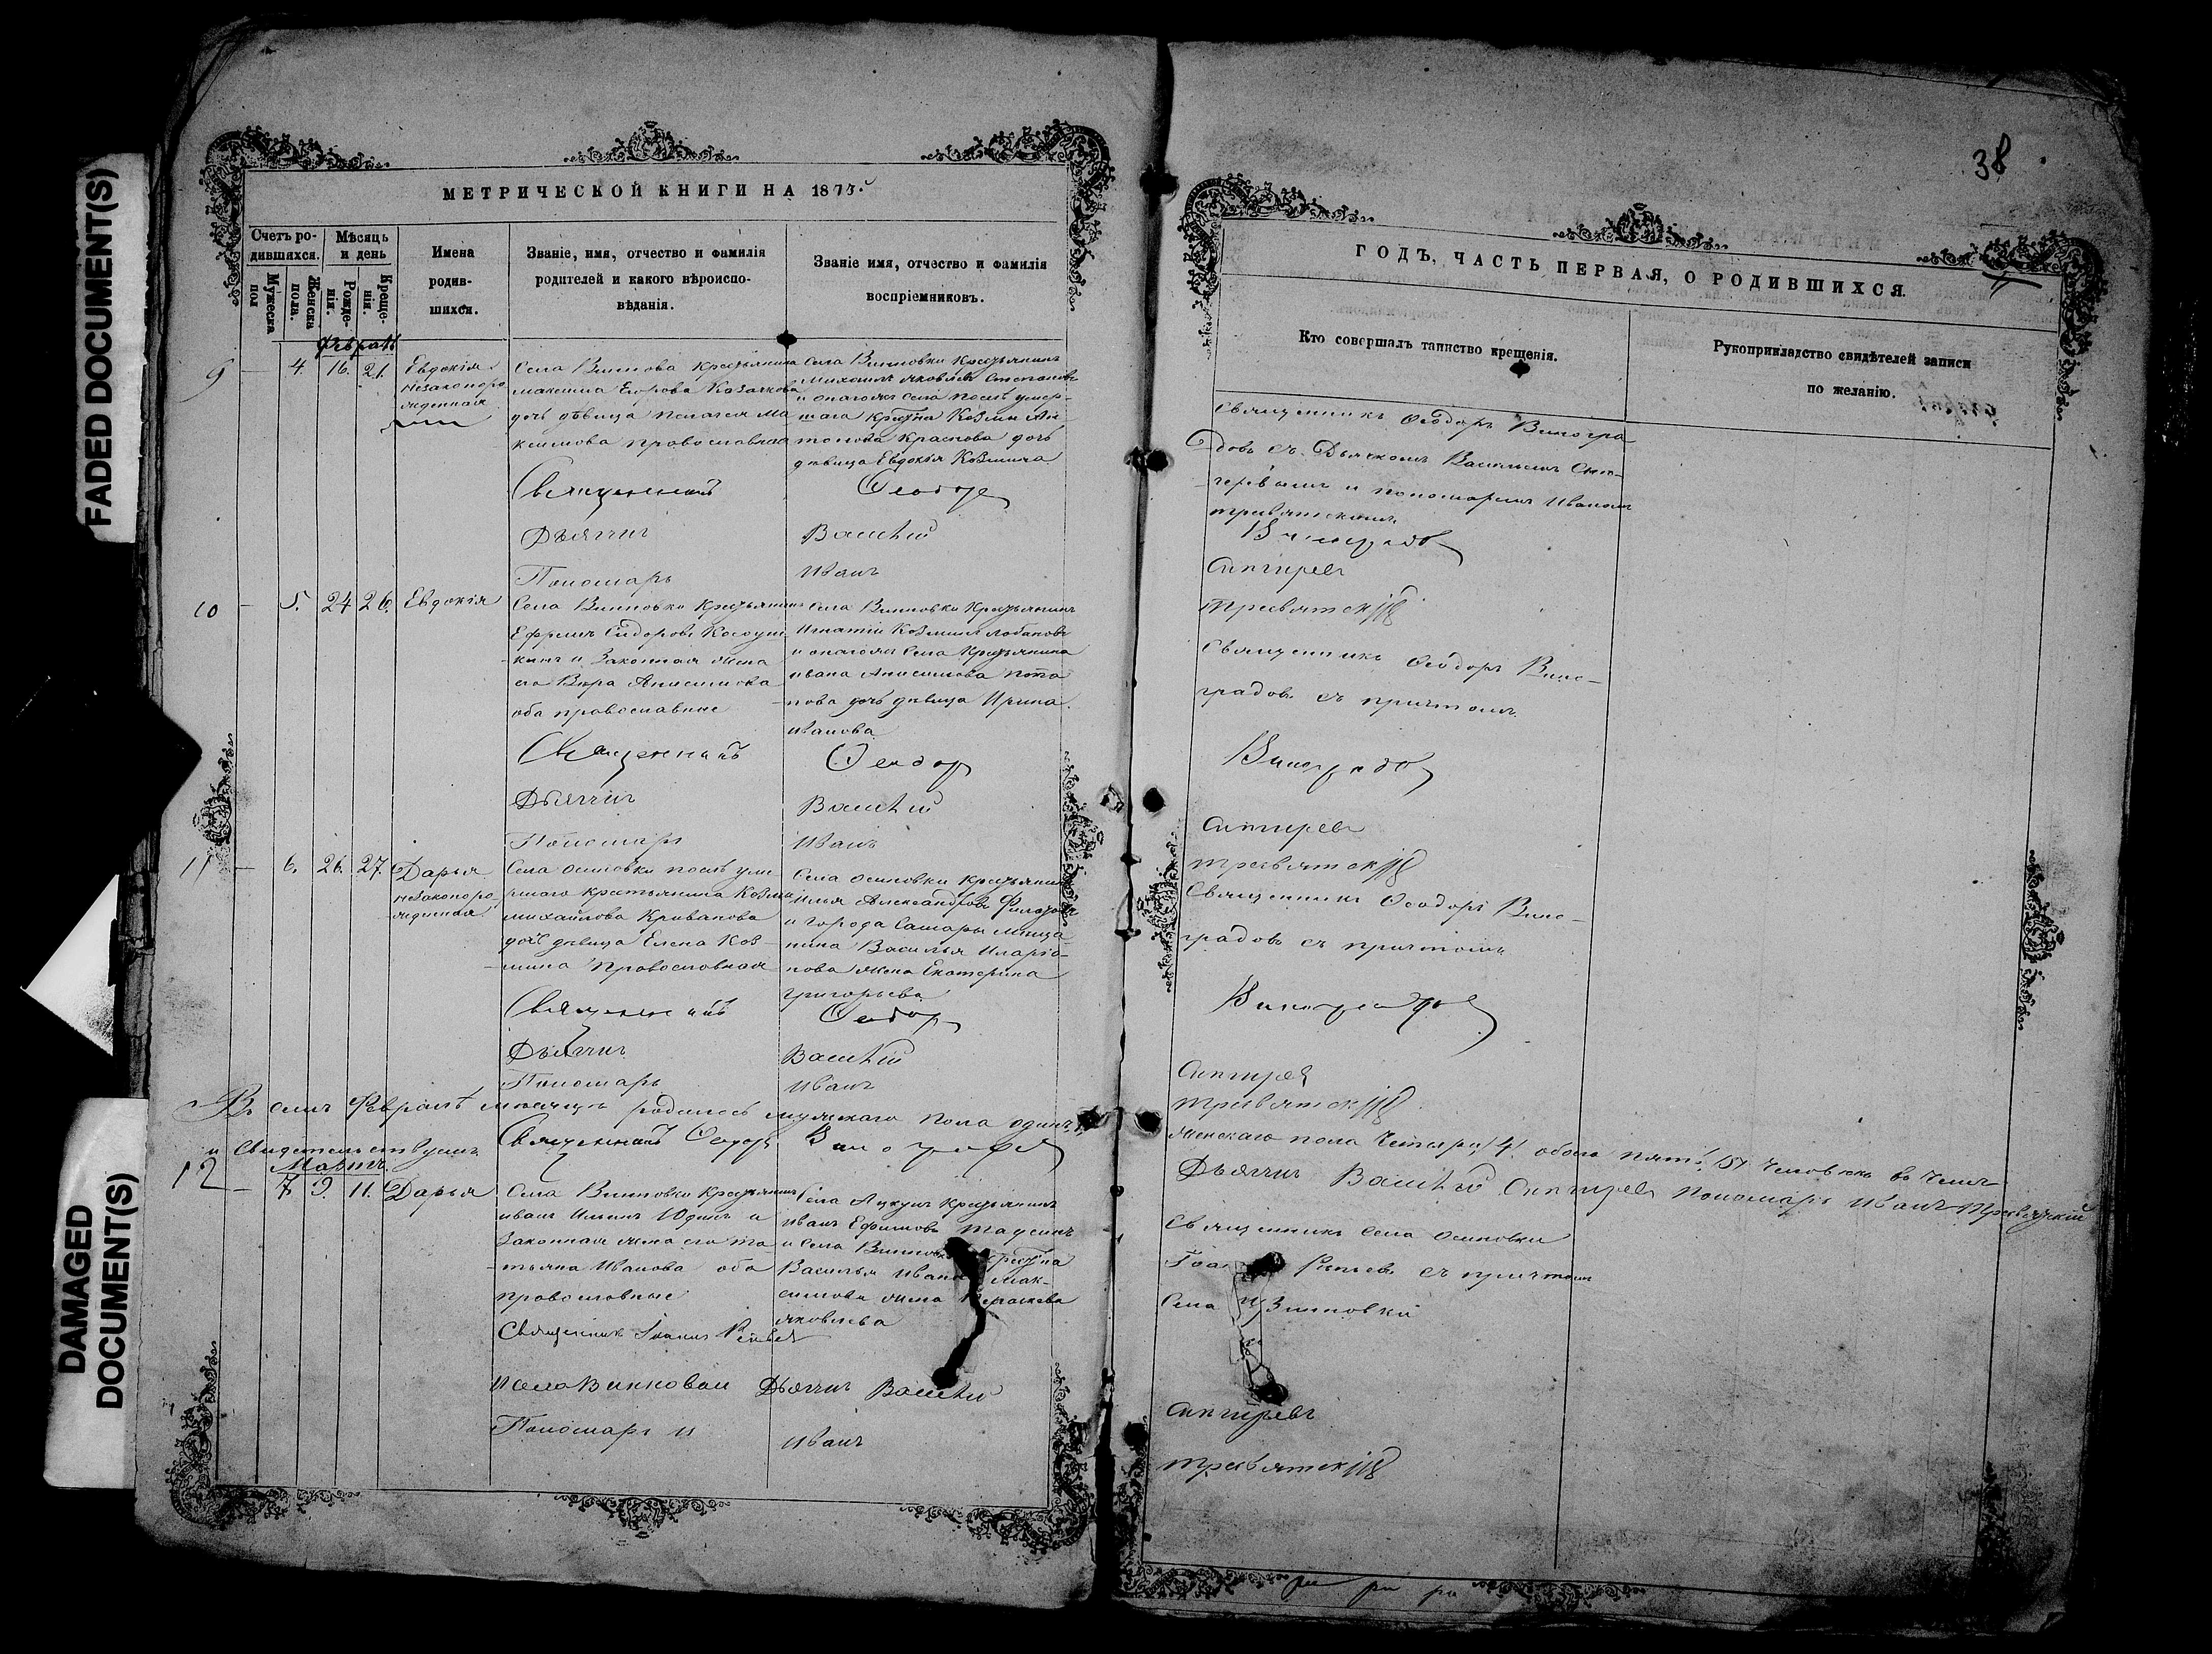 FADED DOCUMENT(S)
DAMAGED
DOCUMENT(S)
МЕТРИЧЕСКОЙ КНИГИ НА 1875.
Счетъ ро-
дившихся.
Мѣсяцъ
и день
Мужеска
пол
Женска
пола.
Рожде-
нія.
Креще-
нія.
Имена
родив-
шихся.
Званіе, имя, отчество и фамилія
родителей и какого вѣроиспо-
вѣданія.
Званіе имя, отчество и фамилія
воспріемниковъ.
Февраль
9 — 4. 16. 21.
Евдокія
незаконоро
жденная
Села Виновка крестьянина
максима Егорова Казачкова
дочь дѣвица Пелагея Ма
ксимова православная
Села Винновки Крестьянинъ
Михаилъ Яковлевъ Степановъ
и онагожъ села послѣ умер-
шаго Крестна Козмы Ан
тонова Краснова дочь
дѣвица Евдокія Козмина
Священникъ Ѳеодоръ
Дьячекъ Василій
Пономарь Иванъ
10 — 5. 24 26.
Евдокія
Села Винновки Крестьянинъ
Ефремъ Сидоровъ
и Законная жена
его Вера Анисимова
оба православные
Села Винновки Крестьянинъ
Игнатій Козминъ Лобановъ
и онагожъ Села Крестьянина
ивана Анисимова Пота
пова дочь дѣвица Ирина
иванова
Священникъ Ѳеодоръ
Дьячекъ Василій
Пономарь Иванъ
11 — 6. 26. 27.
Дарья
незаконоро
жденная
Села Осиновки послѣ уме
ршаго крестьянина Козмы
михайлова Криванова
дочь дѣвица Елена Коз-
мина Православная
Села Осиновки крестьянинъ
Илья Александровъ
и города Самары мѣща-
нина Василья Иларіо-
нова жена Екатерина
григорьева
Священникъ Ѳеодоръ
Дьячекъ Василій
Пономарь Иванъ
Въ семъ Февралѣ мѣсяцѣ родилось мужскаго пола одинъ
и Свидетельствуемъ Священникъ Ѳеодоръ Виноградовъ
Мартъ.
12 — 7. 9. 11.
Дарья
Села Винновки Крестьянинъ
иванъ Ильинъ Юдинъ и
Законная жена его та
тьяна Иванова оба
православные
Села Крестьянинъ
Иванъ Ефимовъ
и Села Винновки крестна
Василья Ивана Мак-
симова жена
яковлева
Священникъ Іоаннъ
и села Винновки Дьячекъ Василій
Пономарь и Иванъ
38
ГОДЪ, ЧАСТЬ ПЕРВАЯ, О РОДИВШИХСЯ.
Кто совершалъ таинство крещенія.
Рукоприкладство свидѣтелей записи
по желанію.
Священникъ Ѳеодоръ Виногра
довъ съ Дьячкомъ Васильемъ Сни-
гиревымъ и пономаремъ Иваномъ
тресвятскимъ
Виноградовъ
Снигиревъ
тресвятскій
Священникъ Ѳеодоръ Вино-
градовъ съ причтомъ
Виноградовъ
Снигиревъ
тресвятскій
Священникъ Ѳеодоръ Вино-
градовъ съ причтомъ
Виноградовъ
Снигиревъ
тресвятскій
Женскаго пола четыре /4/ обоего пять /5/ человекъ въ чемъ
Дьячекъ Василій Снигиревъ Пономарь Иванъ Тресвятскій
Священникъ села Осиновки
съ причтомъ
Села Винновки
Снигиревъ
тресвятскій